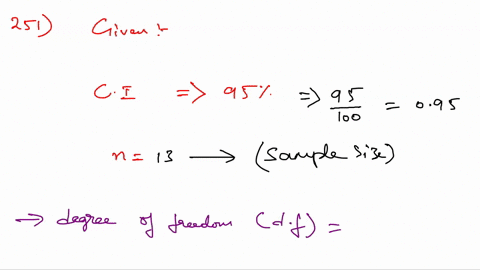 251) Given :-
C.I => 95% => 95/100 = 0.95
n = 13 → (Sample Size)
→ degree of freedom (d.f) =